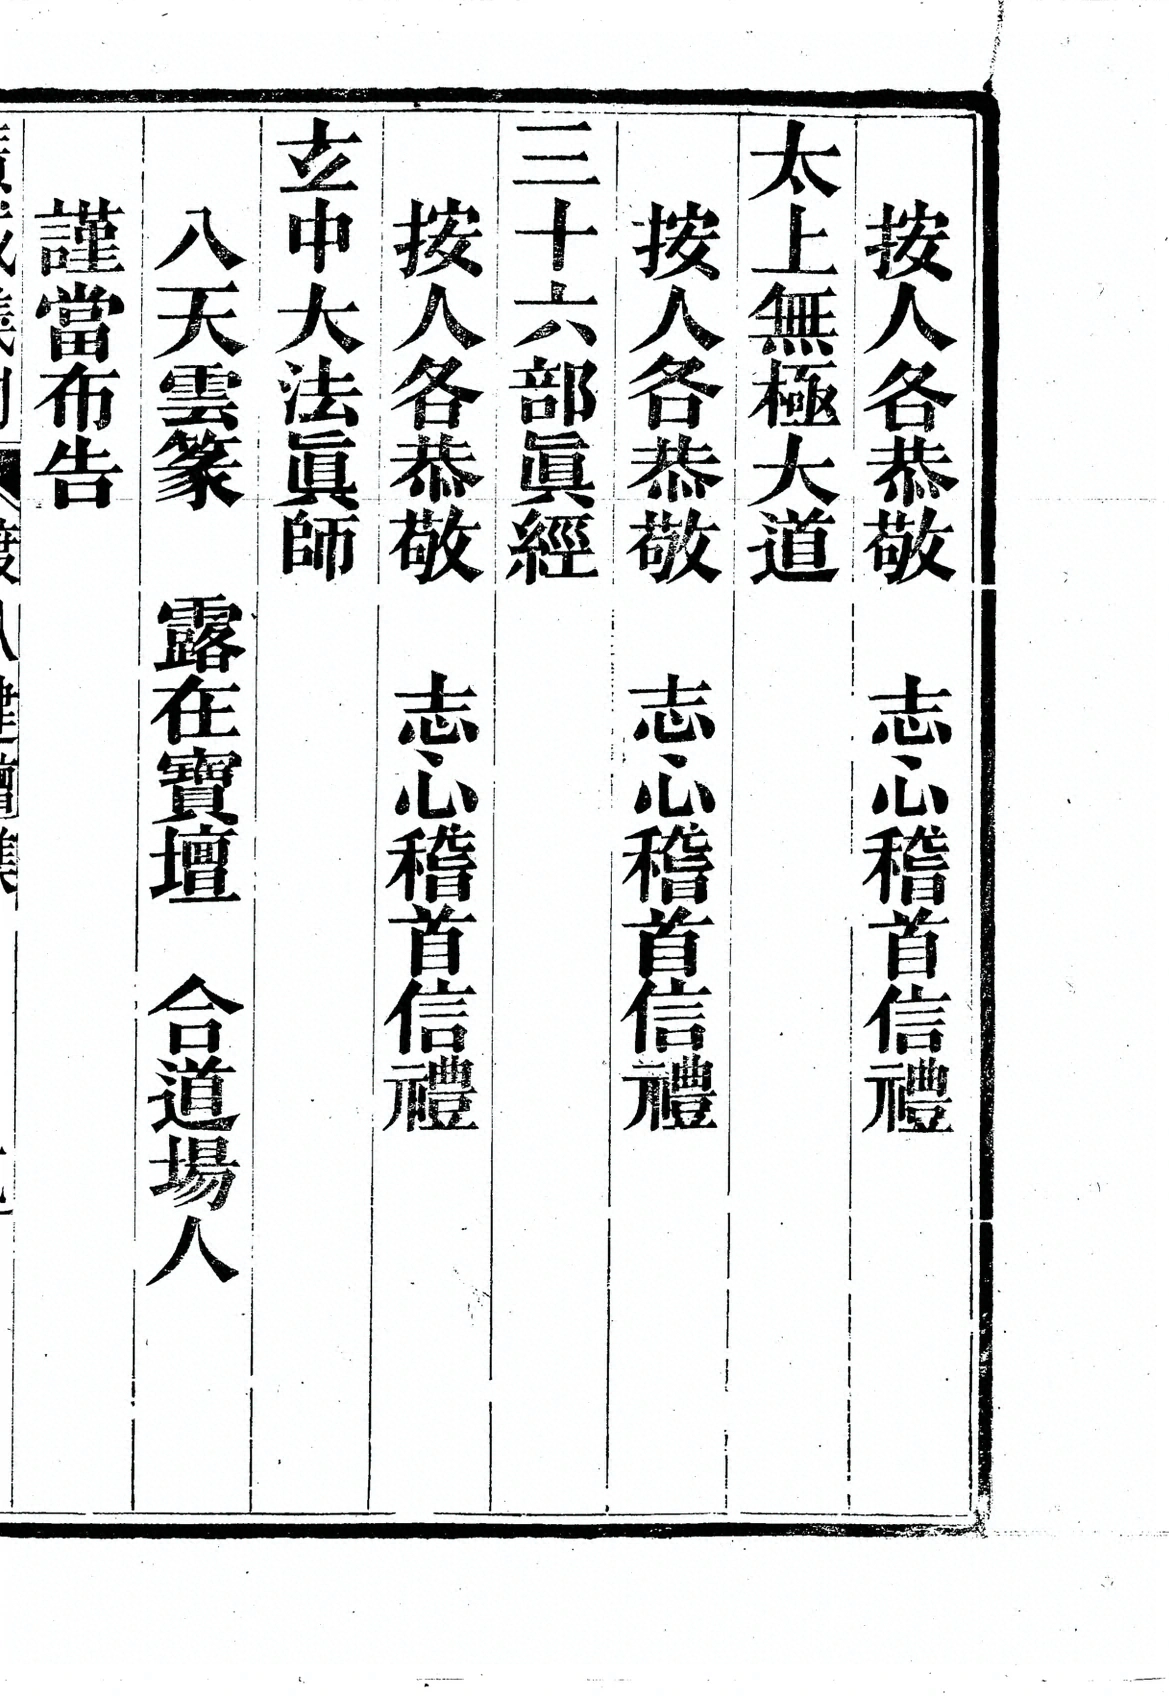 按人各恭敬　志心稽首信禮
太上無極大道
按人各恭敬　志心稽首信禮
三十六部眞經
按人各恭敬　志心稽首信禮
玄中大法眞師
八天雲篆　露在寶壇　合道場人
謹當布告